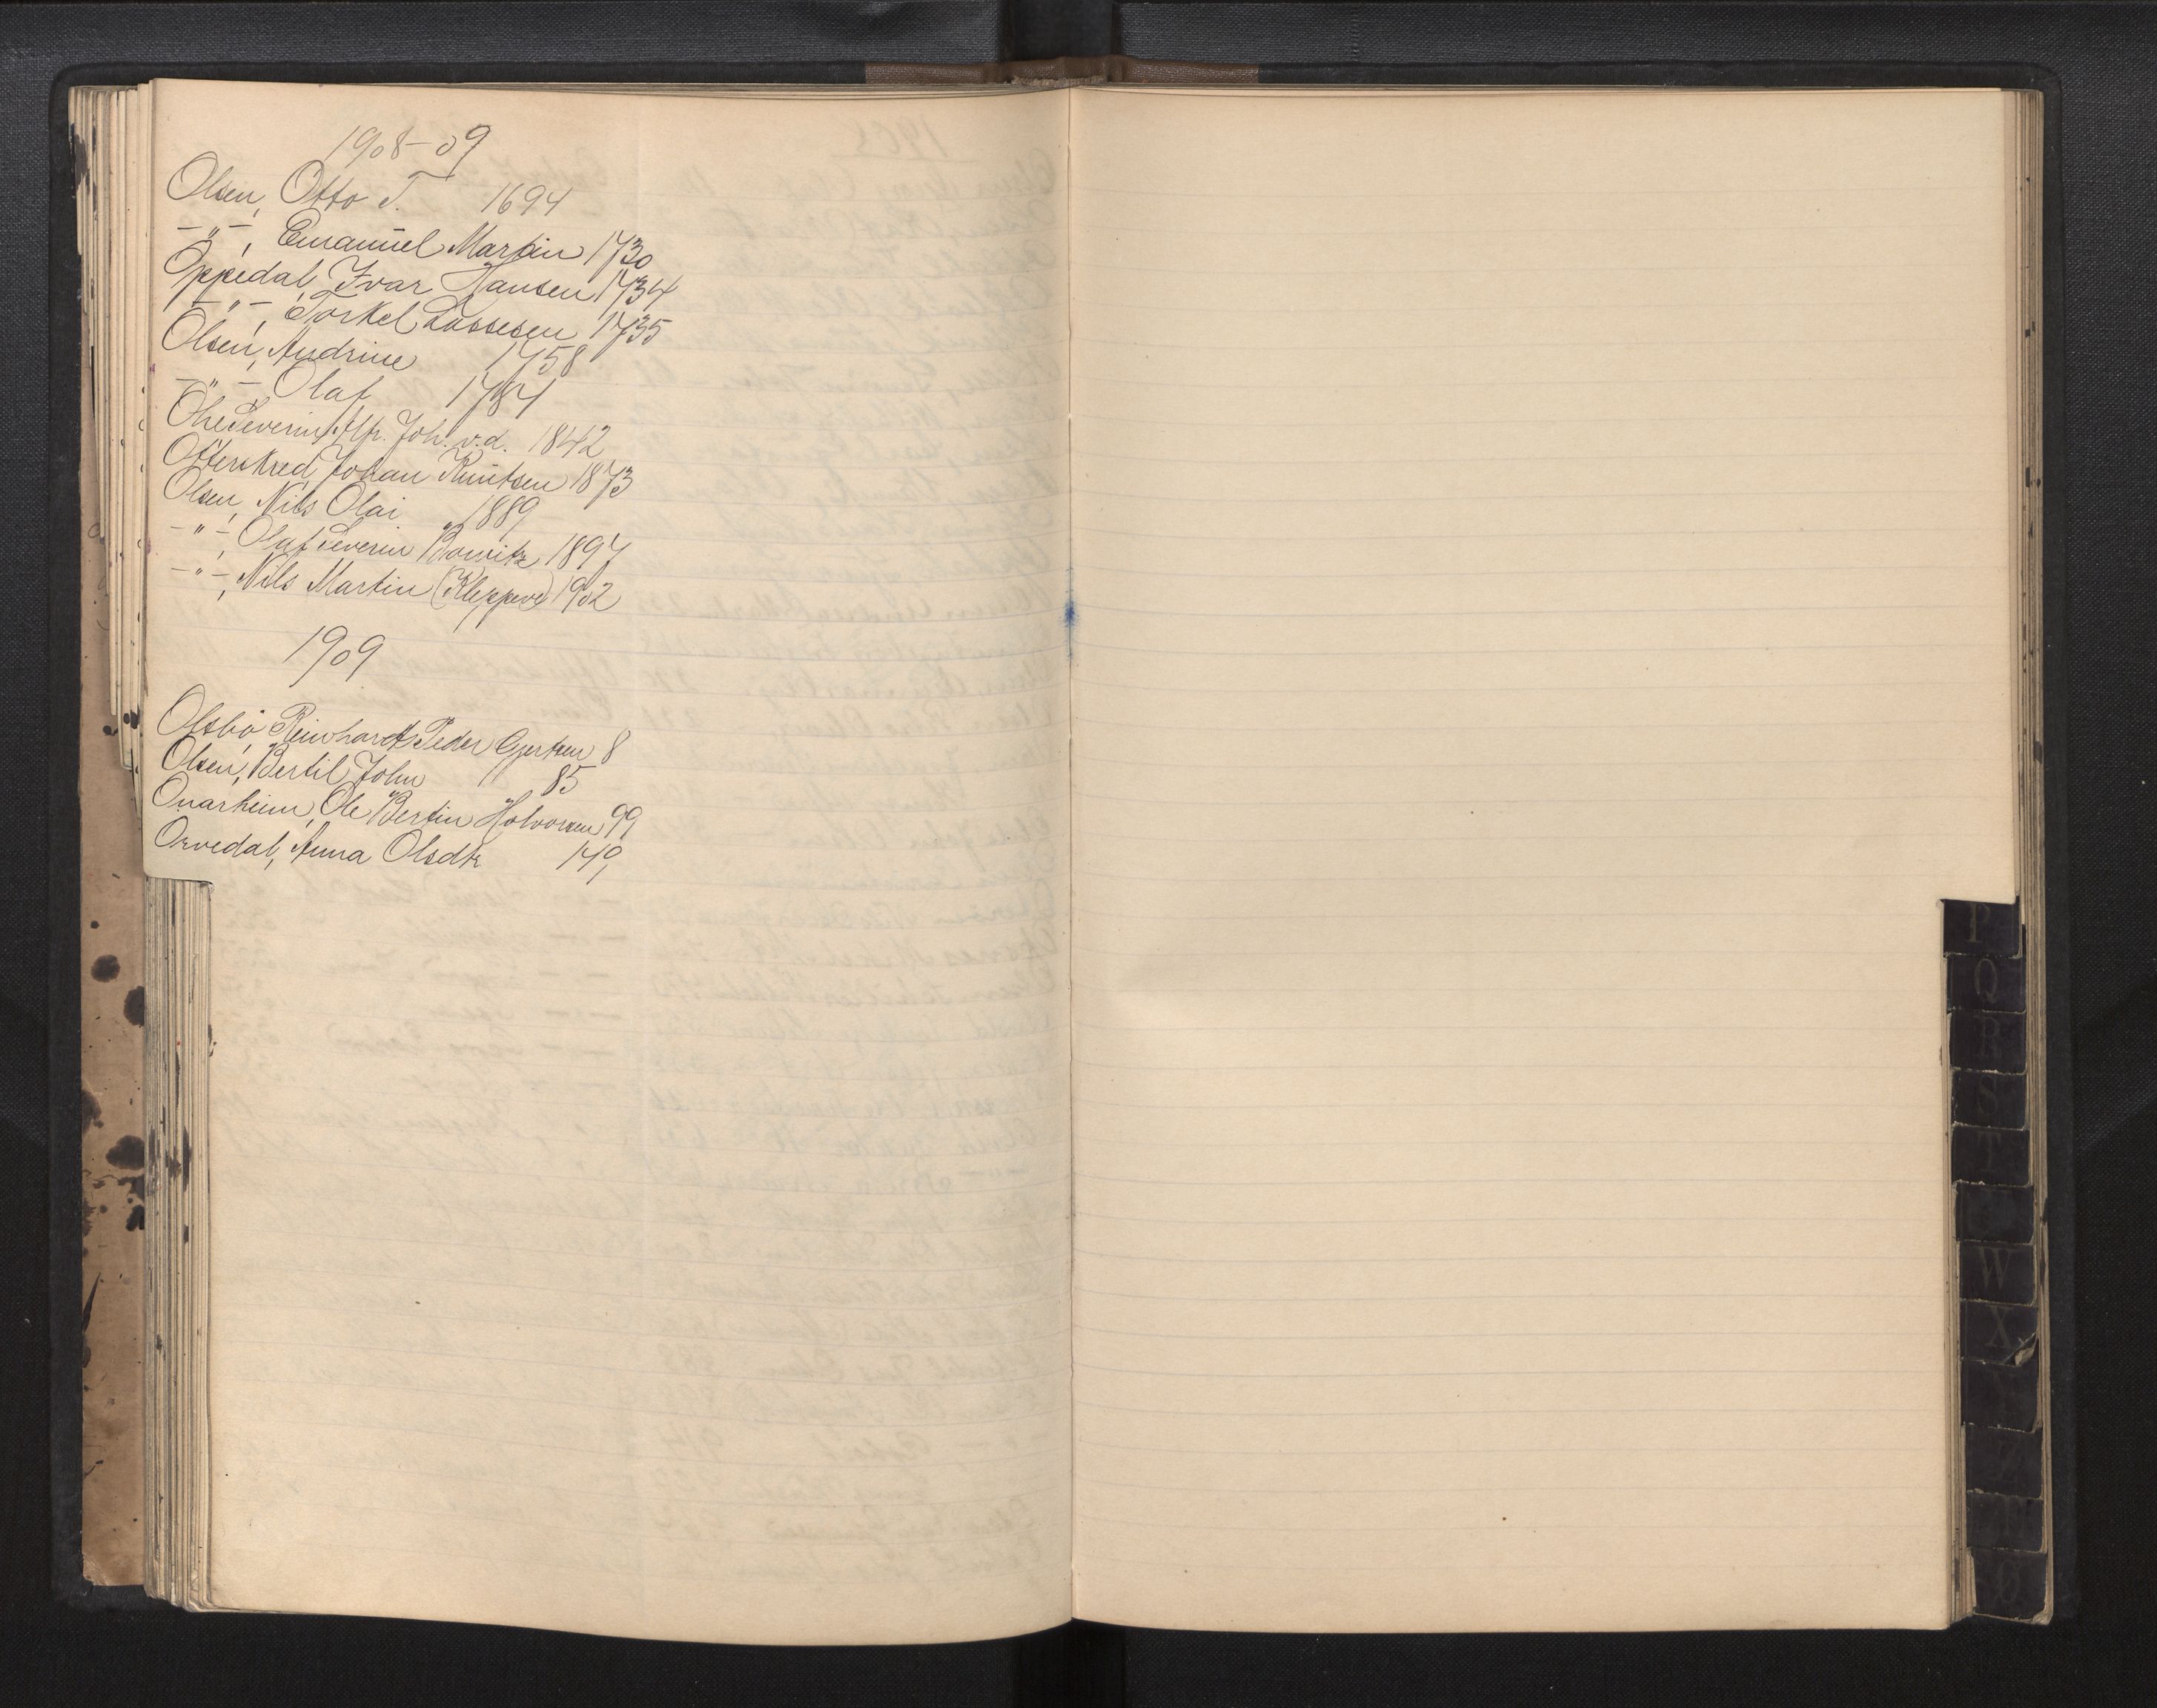 1908-09
Olsen, Otto T. 1694
-"-, Emanuel Martin 1730
Oppedal, Ivar Hansen 1734
-"-, Torkel Lassesen 1735
Olsen, Andrine 1758
-"- Olaf 1784
Alfr. Joh. v.d. 1842
Johan Knutsen 1873
Olsen, Nils Olai 1889
-"-, Olaf Severin 1897
-"-, Nils Martin (Kleppevé) 1902
1909
Olsbø Reinhardt Peder Gjertsen 8
Olsen, Bertil John 85
Onarheim, Ole Bertin Halvorsen 99
Orvedal, Anna Olsdtr 149
P
Q
R
S
T
W
X
Z